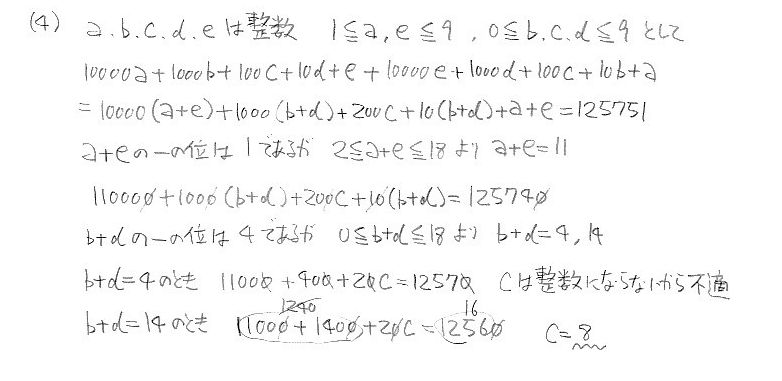 (4) a.b.c.d.eは整数 1≦a,e≦9, 0≦b.c.d≦9として
10000a+1000b+100c+10d+e+10000e+1000d+100c+10b+a
=10000(a+e)+1000(b+d)+200c+10(b+d)+a+e=125751
a+eの一の位は1であるが 2≦a+e≦18より a+e=11
110000+1000(b+d)+200c+10(b+d)=125740
b+dの一の位は4であるが 0≦b+d≦18より b+d=4,14
b+d=4のとき 11000+400+20c=12570 cは整数にならないから不適
1240 16
b+d=14のとき 11000+1400+20c=12560 c=8